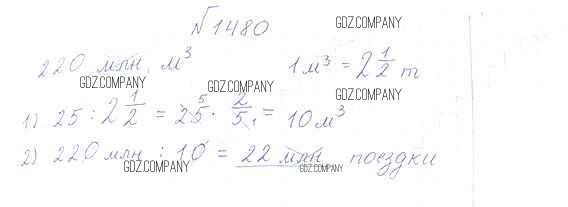 №1480
GDZ.COMPANY
220 млн. м³ 1 м³ = 2 1/2 т
GDZ.COMPANY GDZ.COMPANY GDZ.COMPANY
1) 25 : 2 1/2 = 25⁵ · 2/5₁ = 10 м³
2) 220 млн : 10 = 22 млн поездки
GDZ.COMPANY GDZ.COMPANY